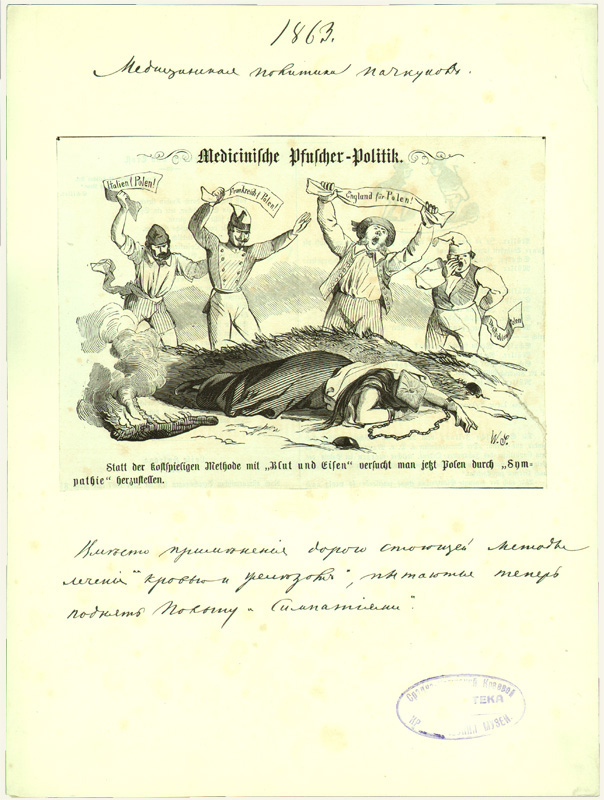 1863.
Медицинская политика пачкуновъ.
Medicinische Pfuscher-Politik.
Italien f. Polen!
Frankreich f. Polen!
England für Polen!
W. S.
Statt der kostspieligen Methode mit „Blut und Eisen“ versucht man jetzt Polen durch „Sym-
pathie“ herzustellen.
Вмѣсто примѣненія дорого стоющей методы
леченія "кровью и желѣзомъ", пытаются теперь
поднять Польшу "Симпатіями".